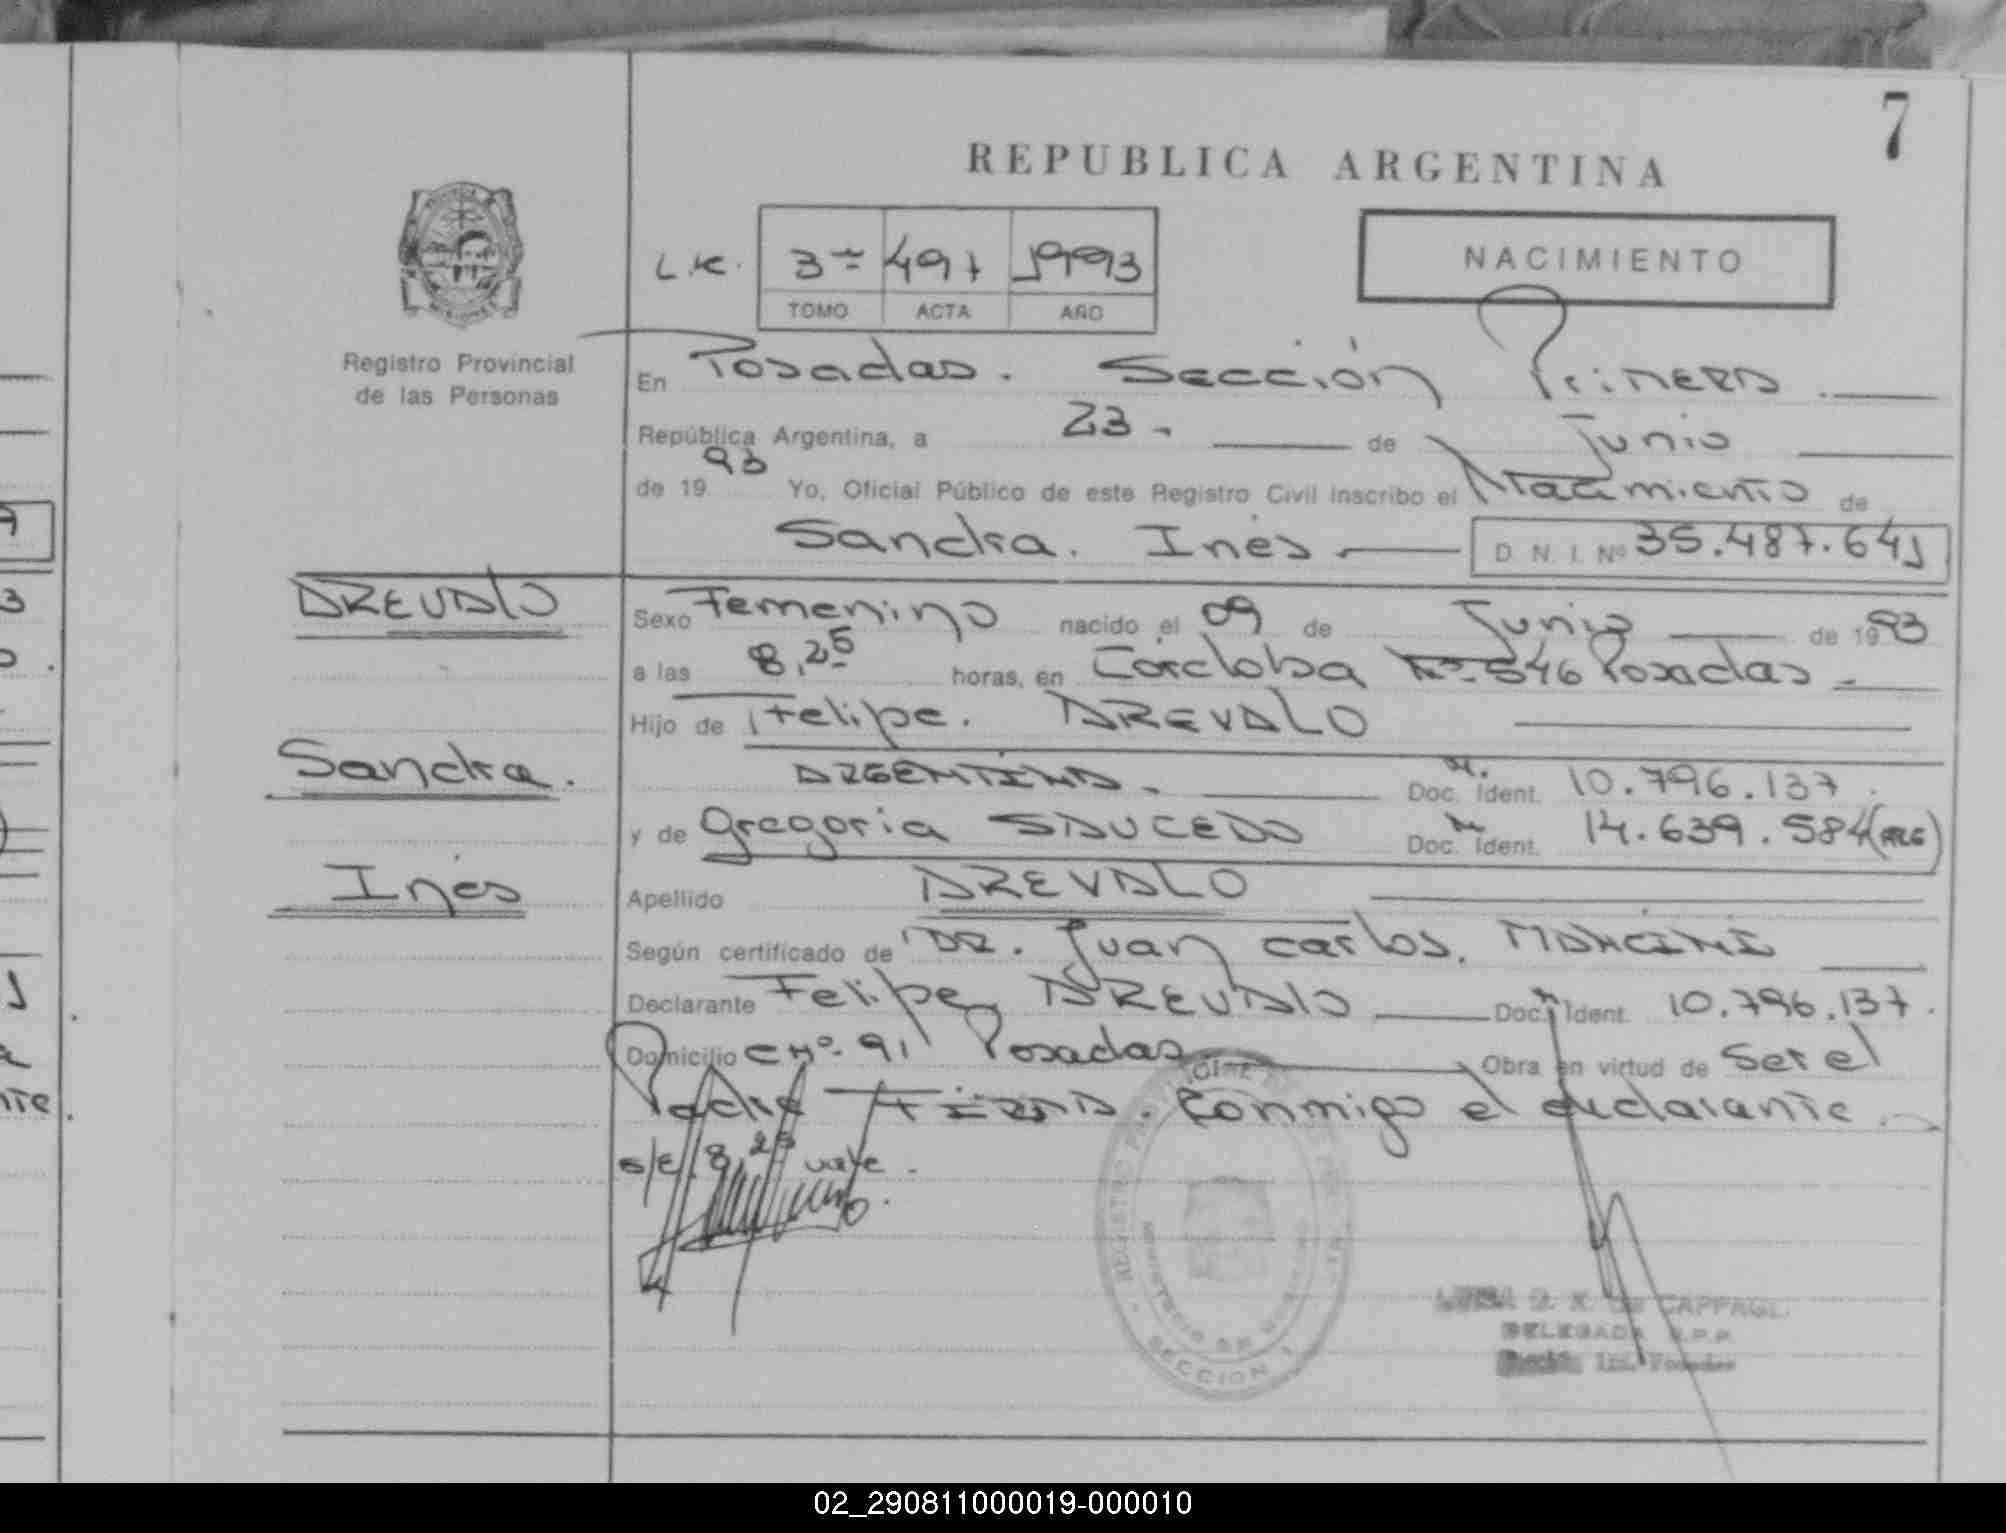 7
REPUBLICA ARGENTINA
NACIMIENTO
3 497 1993
TOMO ACTA AÑO
Registro Provincial
de las Personas
En Posadas. Sección Primera
República Argentina, a 23 - de Junio
de 1993 Yo, Oficial Público de este Registro Civil inscribo el Nacimiento de
Sandra. Inés D. N. I. Nº 35.487.641
AREVALO
Sexo Femenino nacido el 09 de Junio de 1993
a las 8,25 horas, en Córdoba Nº 546 Posadas
Hijo de Felipe. AREVALO
Sandra.
ARGENTINA. - Doc. Ident. M. 10.796.137.
y de Gregoria SAUCEDO Doc. Ident. 14.639.584 (ARG)
Inés
Apellido AREVALO
Según certificado de DR. Juan Carlos. MANCINI
Declarante Felipe AREVALO Doc. Ident. 10.796.137.
Domicilio CH Nº 91 Posadas Obra en virtud de Ser el
Padre FIRMA. Conmigo el declarante.
S/E. 8,25 vale.
REGISTRO PROVINCIAL DE LAS PERSONAS
MINISTERIO DE GOBIERNO
SECCION 1
DELEGADA R.P.P.
02_290811000019-000010